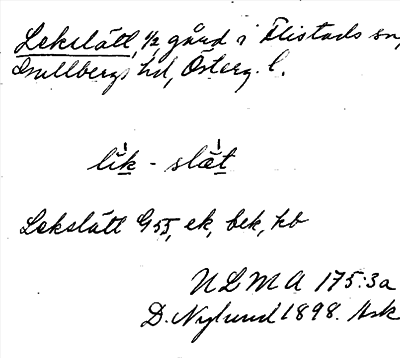 Lekslätt, 1/2 gård i Flistads sn,
Gullbergs hd, Österg. l.
lìk - slàt
Lekslätt G 55, ek, bek, kb
ULMA 175:3a
D. Nylund 1898. Ask